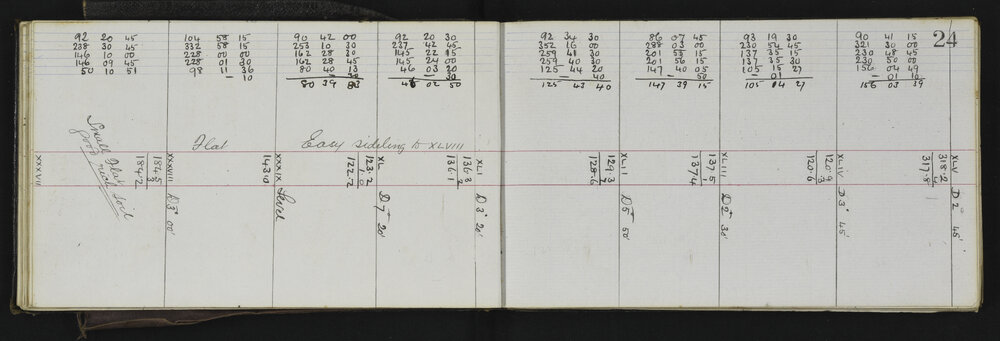 24
92 20 45
238 30 45
146 10 00
146 09 45
50 10 51
104 58 15
332 58 15
228 00 00
228 01 30
98 11 36
— 10
90 42 00
253 10 30
162 28 30
162 28 45
80 40 13
— 30
80 39
92 20 30
237 42 45
145 22 15
145 24 00
46 03 20
— 30
02 50
92 34 30
352 16 00
259 41 30
259 40 30
125 44 20
— 40
125 43 40
86 07 45
288 03 00
201 55 15
201 56 15
147 40 05
— 50
147 39 15
93 19 30
230 54 45
137 35 15
137 35 30
105 15 27
— 01
105 14 27
90 41 15
321 30 00
230 48 45
230 50 00
156 04 49
— 01 10
156 03 39
Small Flat
good rich soil
Flat
Easy sideling to XLVIII
XXXVII
184.5
.3
184.2
XXXVIII
D 3° 00'
143.0
XXXIX
Level
123.2
1.0
122.2
XL
D 7° 20'
136.3
.2
136.1
XLI
D 3° 20'
129.3
.7
128.6
XLII
D 5° 50'
137.5
137.4
XLIII
D 2° 30'
120.9
.3
120.6
XLIV
D 3° 45'
318.2
.4
317.8
XLV
D 2° 45'